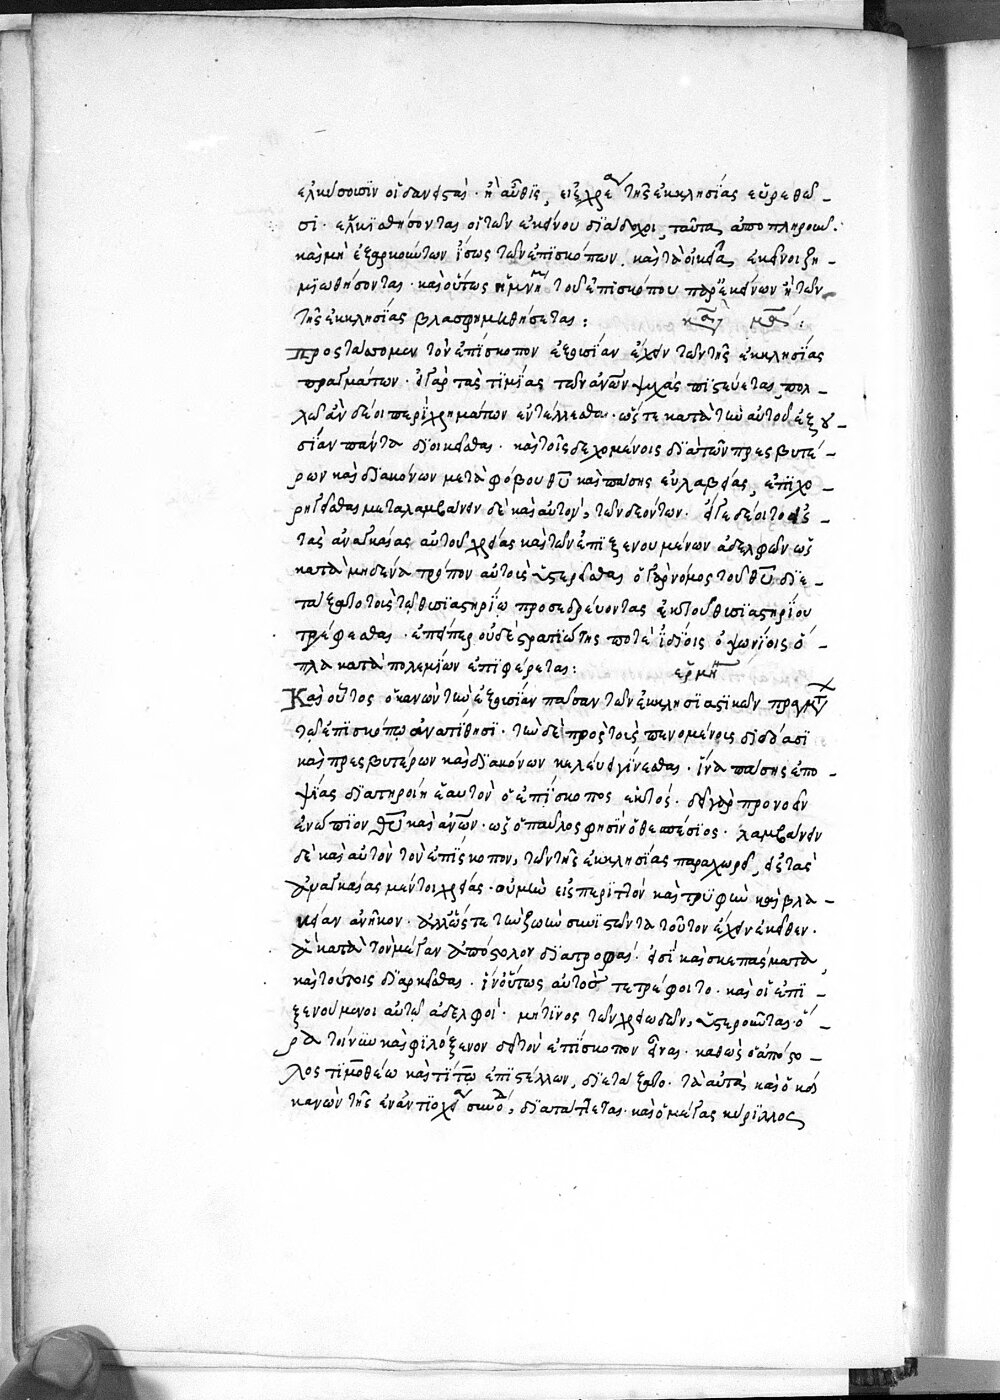 ἑλκύσουσιν οἱ δανεισταί· ἢ αὖθις, εἰ ἐν χρέει τῆς ἐκκλησίας εὕρεθῶ-
σι· ἑλκυσθήσονται οἱ τῶν ἐκείνου διάδοχοι, ταῦτα ἀποπληροῦν·
καὶ μὴ ἐξαρκούντων ἴσως τῶν ἐπισκόπων, καὶ τὰ οἰκεῖα ἐκεῖνοι ζη-
μιωθήσονται· καὶ οὕτως ἡ μνήμη τοῦ ἐπισκόπου παρ' ἐκείνων ἢ τῶν
τῆς ἐκκλησίας βλασφημηθήσεται: κανὼν μα:
Προστάσσομεν τὸν ἐπίσκοπον ἐξουσίαν ἔχειν τῶν τῆς ἐκκλησίας
πραγμάτων· εἰ γὰρ τὰς τιμίας τῶν ἀνῶν ψυχὰς πιστεύεται, πολ-
λῷ ἂν δέοι περὶ χρημάτων ἐντέλλεσθαι· ὥστε κατὰ τὴν αὐτοῦ ἐξου-
σίαν πάντα διοικεῖσθαι· καὶ τοῖς δεχομένοις διὰ τῶν πρεσβυτέ-
ρων καὶ διακόνων μετὰ φόβου θυ καὶ πάσης εὐλαβείας, ἐπιχο-
ρηγεῖσθαι μεταλαμβάνειν δὲ καὶ αὐτὸν, τῶν δεόντων· εἴγε δέοιτο εἰς
τὰς ἀναγκαίας αὐτοῦ χρείας καὶ τῶν ἐπιξενουμένων ἀδελφῶν ὡς
κατὰ μηδένα τρόπον αὐτοὺς ὑστερεῖσθαι ὁ γὰρ νόμος τοῦ θυ διε-
τάξατο τοὺς τῷ θυσιαστηρίῳ προσεδρεύοντας ἐκ τοῦ θυσιαστηρίου
τρέφεσθαι· ἐπείπερ οὐδὲ στρατιώτης ποτὲ ἰδίοις ὀψωνίοις ὅ-
πλα κατὰ πολεμίων ἐπιφέρεται: ἑρμη
Καὶ οὗτος ὁ κανὼν τὴν ἐξουσίαν πᾶσαν τῶν ἐκκλησιαστικῶν πραγμάτων
τῷ ἐπισκόπῳ ἀνατίθησι· τὴν δὲ πρὸς τοὺς πενομένους δίδοσθαι
καὶ πρεσβυτέρων καὶ διακόνων κελεύει γίνεσθαι· ἵνα πάσης ὑπο-
ψίας διατηροίη ἑαυτὸν ὁ ἐπίσκοπος ἐκτός· δεῖ γὰρ προνοεῖν
ἐνώπιον θυ καὶ ἀνων· ὡς ὁ παῦλος φησὶν ὁ θεσπέσιος· λαμβάνειν
δὲ καὶ αὐτὸν τὸν ἐπίσκοπον, τῶν τῆς ἐκκλησίας παραχωρεῖ, εἰς τὰς
ἀναγκαίας μέντοι χρείας· οὐ μὴν εἰς περιττὸν καὶ τρυφὴν καὶ βλα-
κείαν ἀνῆκον· ἀλλ' ὥστε τὴν ζωὴν συνιστῶντα τοῦτον ἔχειν ἐκεῖθεν·
ἃ κατὰ τὸν μέγαν ἀπόστολον διατροφαί· εἰσὶ καὶ σκεπάσματα,
καὶ τούτοις διαρκεῖσθαι· ἵν' οὕτως αὐτός τε τρέφοιτο· καὶ οἱ ἐπι-
ξενούμενοι αὐτῷ ἀδελφοί· μή τινος τῶν χρειωδῶν, ὑστεροῦνται· ὅ-
ρα τοίνυν καὶ φιλόξενον δεῖ τὸν ἐπίσκοπον εἶναι· καθὼς ὁ ἀπόστο-
λος τιμοθέῳ καὶ τίτῳ ἐπιστέλλων, διετάξατο· τὰ αὐτὰ καὶ ὁ κε
κανὼν τῆς ἐν ἀντιοχείᾳ συνόδου, διατάττεται· καὶ ὁ μέγας κύριλλος